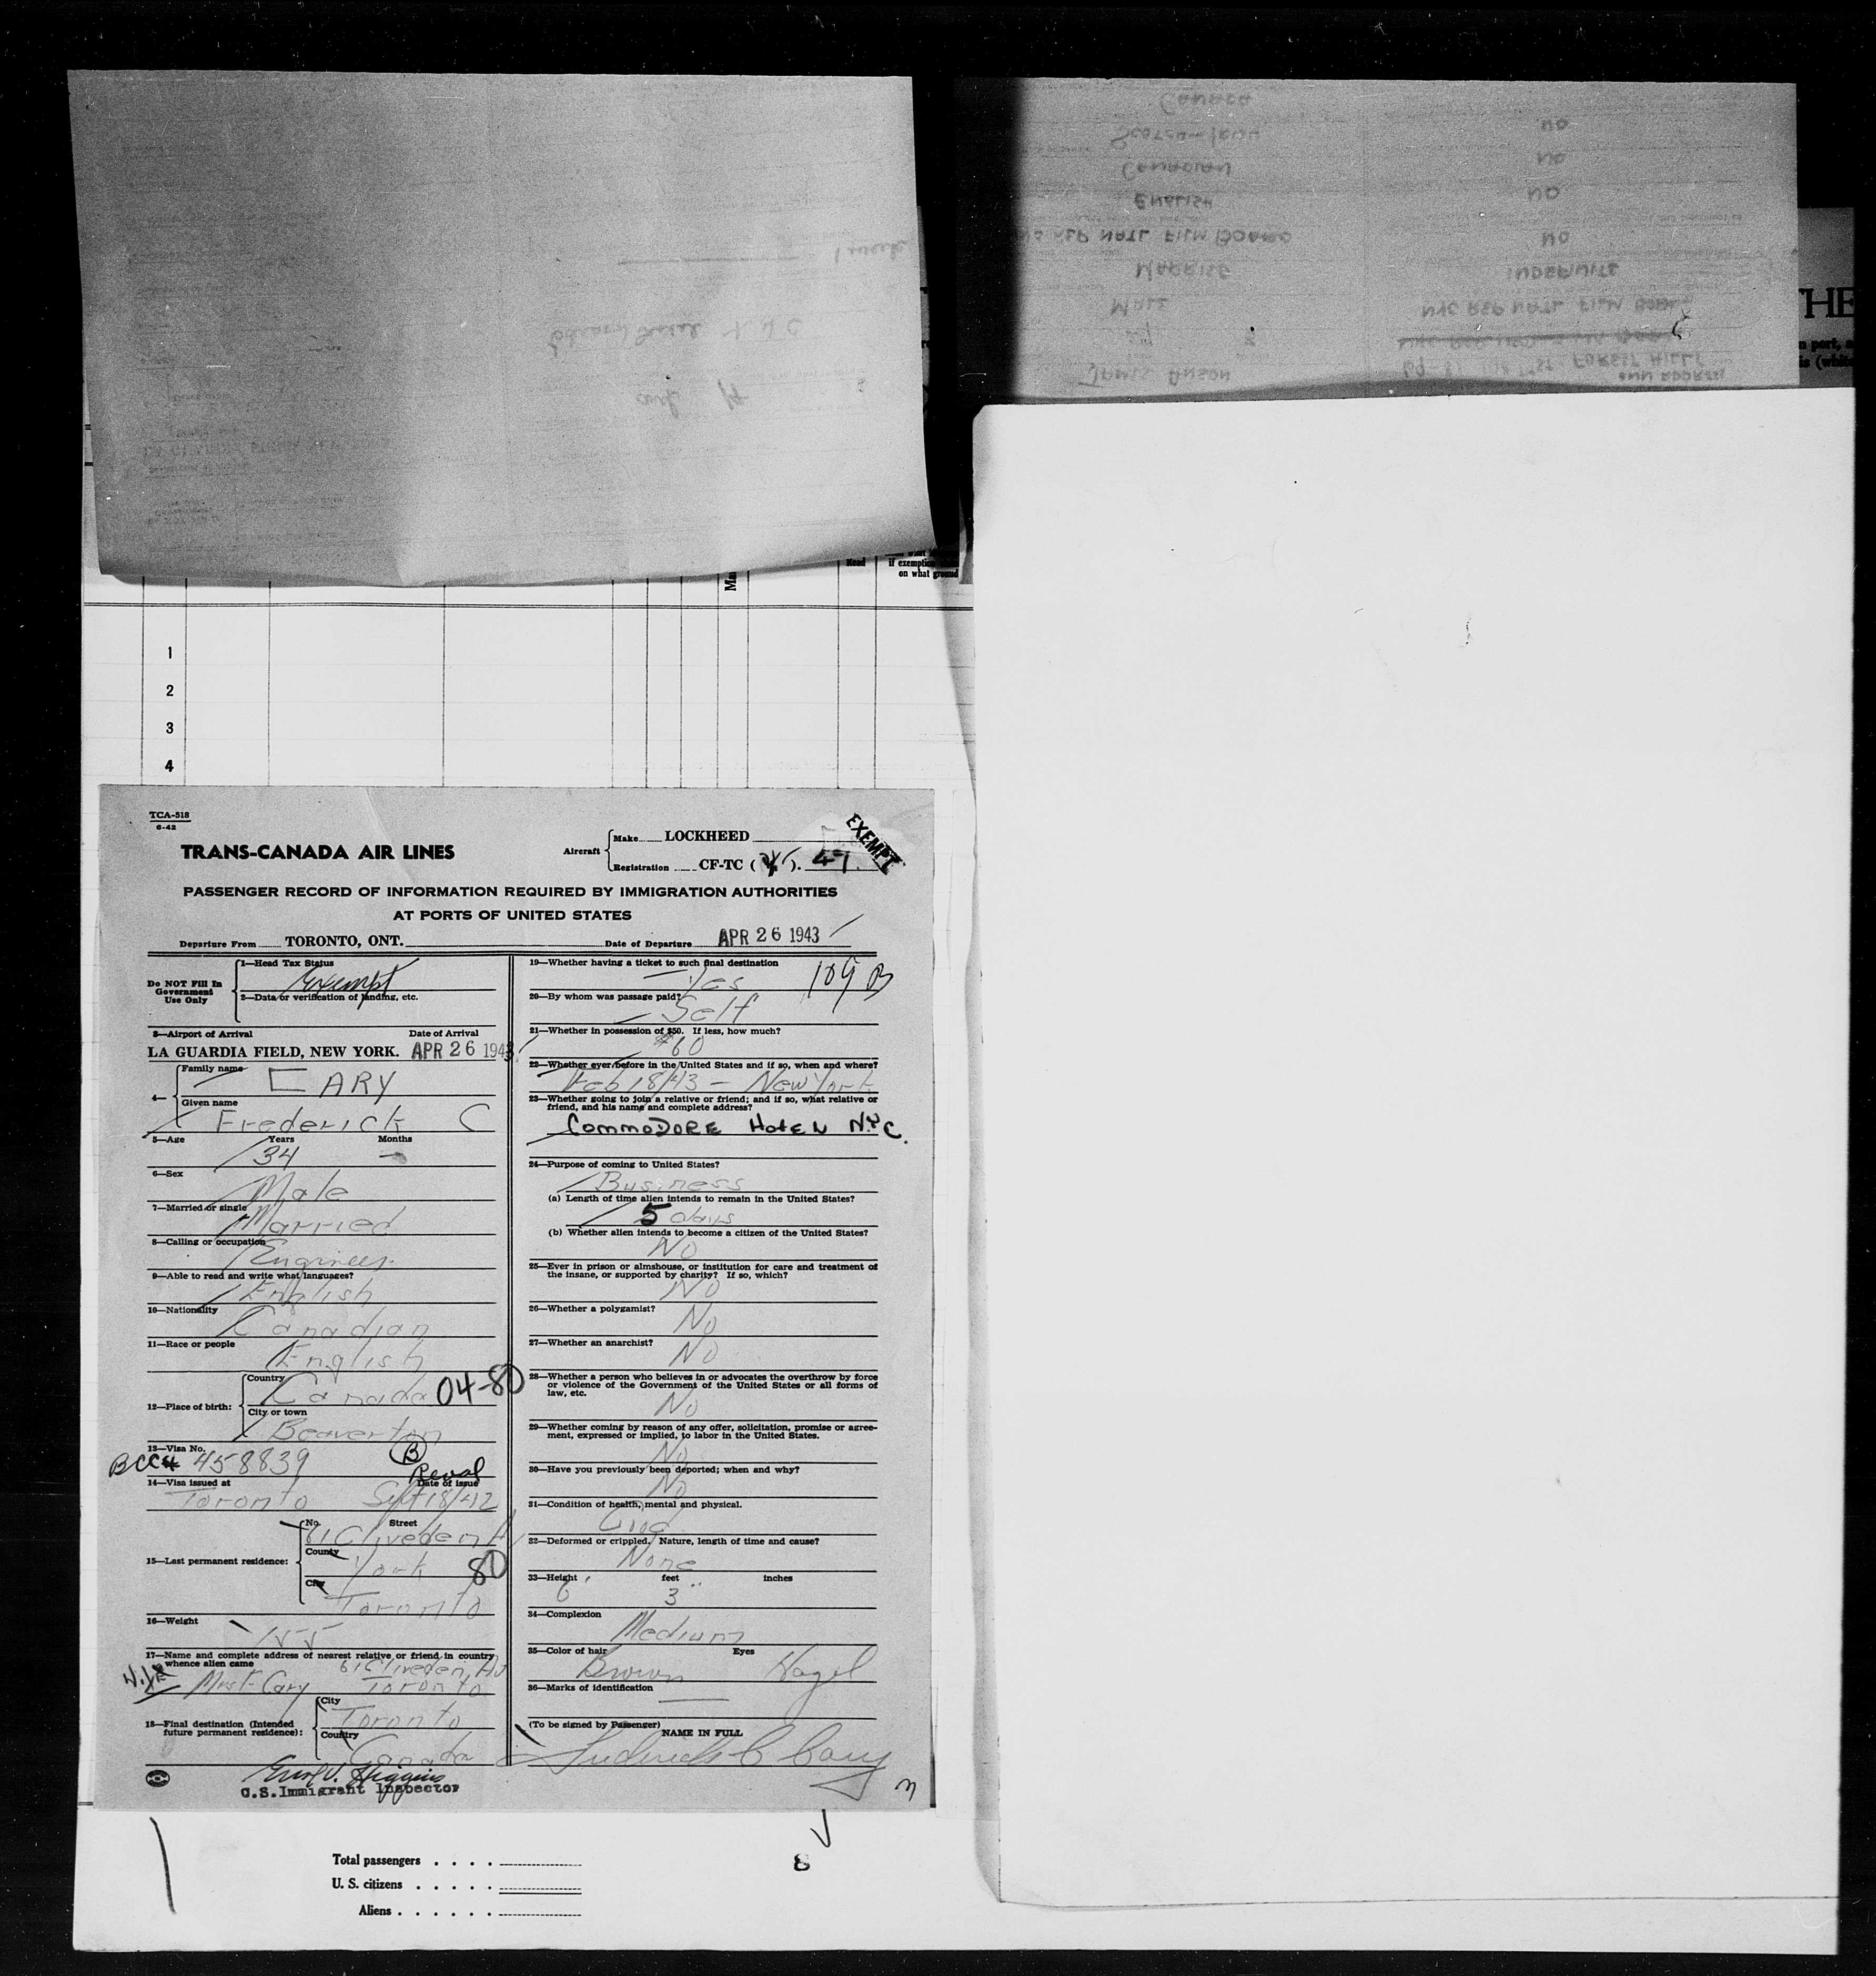 1 week
CANADA
SCOTCH-IRISH
NO
CANADIAN
NO
ENGLISH
NO
REP NATL FILM BOARD
NO
MARRIED
INDEFINITE
MALE
NYC REP NATL FILM BOARD
JAMES ANSON
FOREST HILLS
THE
if exemption
on what ground
1
2
3
4
TCA-518
6-42
TRANS-CANADA AIR LINES
Aircraft
Make LOCKHEED
Registration CF-TC ( ). 47.
EXEMPT
PASSENGER RECORD OF INFORMATION REQUIRED BY IMMIGRATION AUTHORITIES
AT PORTS OF UNITED STATES
Departure From TORONTO, ONT. Date of Departure APR 26 1943
Do NOT Fill In Government Use Only
1—Head Tax Status
Exempt
2—Data or verification of landing, etc.
3—Airport of Arrival Date of Arrival
LA GUARDIA FIELD, NEW YORK. APR 26 1943
4— Family name
CARY
Given name
Frederick C
5—Age Years Months
34 —
6—Sex
Male
7—Married or single
Married
8—Calling or occupation
Engineer
9—Able to read and write what languages?
English
10—Nationality
Canadian
11—Race or people
English
12—Place of birth:
Country
Canada 04-80
City or town
Beaverton
13—Visa No.
BCC# 458839 B
14—Visa issued at Date of issue
Toronto Sept 18/42
15—Last permanent residence:
No. Street
61 Cliveden A
County
York 80
City
Toronto
16—Weight
155
17—Name and complete address of nearest relative or friend in country
whence alien came
61 Cliveden Av
Mrs F. Cary Toronto
18—Final destination (Intended
future permanent residence):
City
Toronto
Country
Canada
Higgins
U.S. Immigrant Inspector
19—Whether having a ticket to such final destination
Yes 109 B
20—By whom was passage paid?
Self
21—Whether in possession of $50. If less, how much?
$60
22—Whether ever before in the United States and if so, when and where?
Feb 18/43 — New York
23—Whether going to join a relative or friend; and if so, what relative or
friend, and his name and complete address?
COMMODORE HOTEL N.Y.C.
24—Purpose of coming to United States?
Business
(a) Length of time alien intends to remain in the United States?
5 days
(b) Whether alien intends to become a citizen of the United States?
No
25—Ever in prison or almshouse, or institution for care and treatment of
the insane, or supported by charity? If so, which?
No
26—Whether a polygamist?
No
27—Whether an anarchist?
No
28—Whether a person who believes in or advocates the overthrow by force
or violence of the Government of the United States or all forms of
law, etc.
No
29—Whether coming by reason of any offer, solicitation, promise or agree-
ment, expressed or implied, to labor in the United States.
No
30—Have you previously been deported; when and why?
No
31—Condition of health, mental and physical.
Good
32—Deformed or crippled. Nature, length of time and cause?
None
33—Height feet inches
6' 3"
34—Complexion
Medium
35—Color of hair Eyes
Brown Hazel
36—Marks of identification
—
(To be signed by Passenger) NAME IN FULL
Frederick C Cary
8
Total passengers . . . .
U. S. citizens . . . . .
Aliens . . . . . .